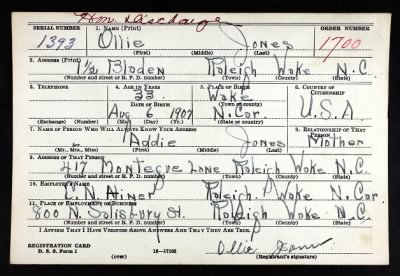 Hon. Discharge
SERIAL NUMBER 1. NAME (Print) ORDER NUMBER
1393 Ollie Jones 1700
(First) (Middle) (Last)
2. ADDRESS (Print)
1/2 Bladen Raleigh Wake N.C.
(Number and street or R. F. D. number) (Town) (County) (State)
3. TELEPHONE 4. AGE IN YEARS 5. PLACE OF BIRTH 6. COUNTRY OF CITIZENSHIP
33 Wake
DATE OF BIRTH (Town or county)
Aug 6 1907 N.Car. U.S.A
(Exchange) (Number) (Mo.) (Day) (Yr.) (State or country)
7. NAME OF PERSON WHO WILL ALWAYS KNOW YOUR ADDRESS 8. RELATIONSHIP OF THAT PERSON
Addie Jones Mother
(Mr., Mrs., Miss) (First) (Middle) (Last)
9. ADDRESS OF THAT PERSON
417 Montegue Lane Raleigh Wake N.C.
(Number and street or R. F. D. number) (Town) (County) (State)
10. EMPLOYER'S NAME
C.N. Hiner Raleigh. Wake N.Car.
11. PLACE OF EMPLOYMENT OR BUSINESS
800 N. Salisbury St. Raleigh Wake N.C.
(Number and street or R. F. D. number) (Town) (County) (State)
I AFFIRM THAT I HAVE VERIFIED ABOVE ANSWERS AND THAT THEY ARE TRUE.
REGISTRATION CARD
D. S. S. Form 1 16—17105 Ollie Jones
(over) (Registrant's signature)